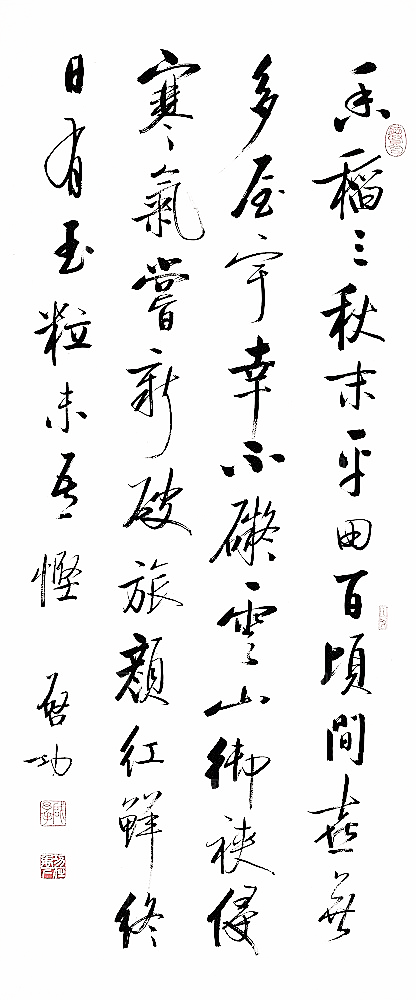 香稻三秋末平田百頃間喜無
多屋宇幸不礙雲山御裌侵
寒氣嘗新破旅顏紅鮮終
日有玉粒未吾慳
啓功